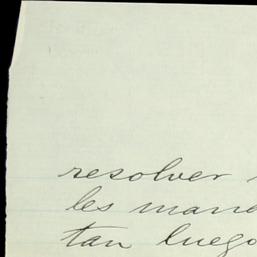 resolver
les
tan luego